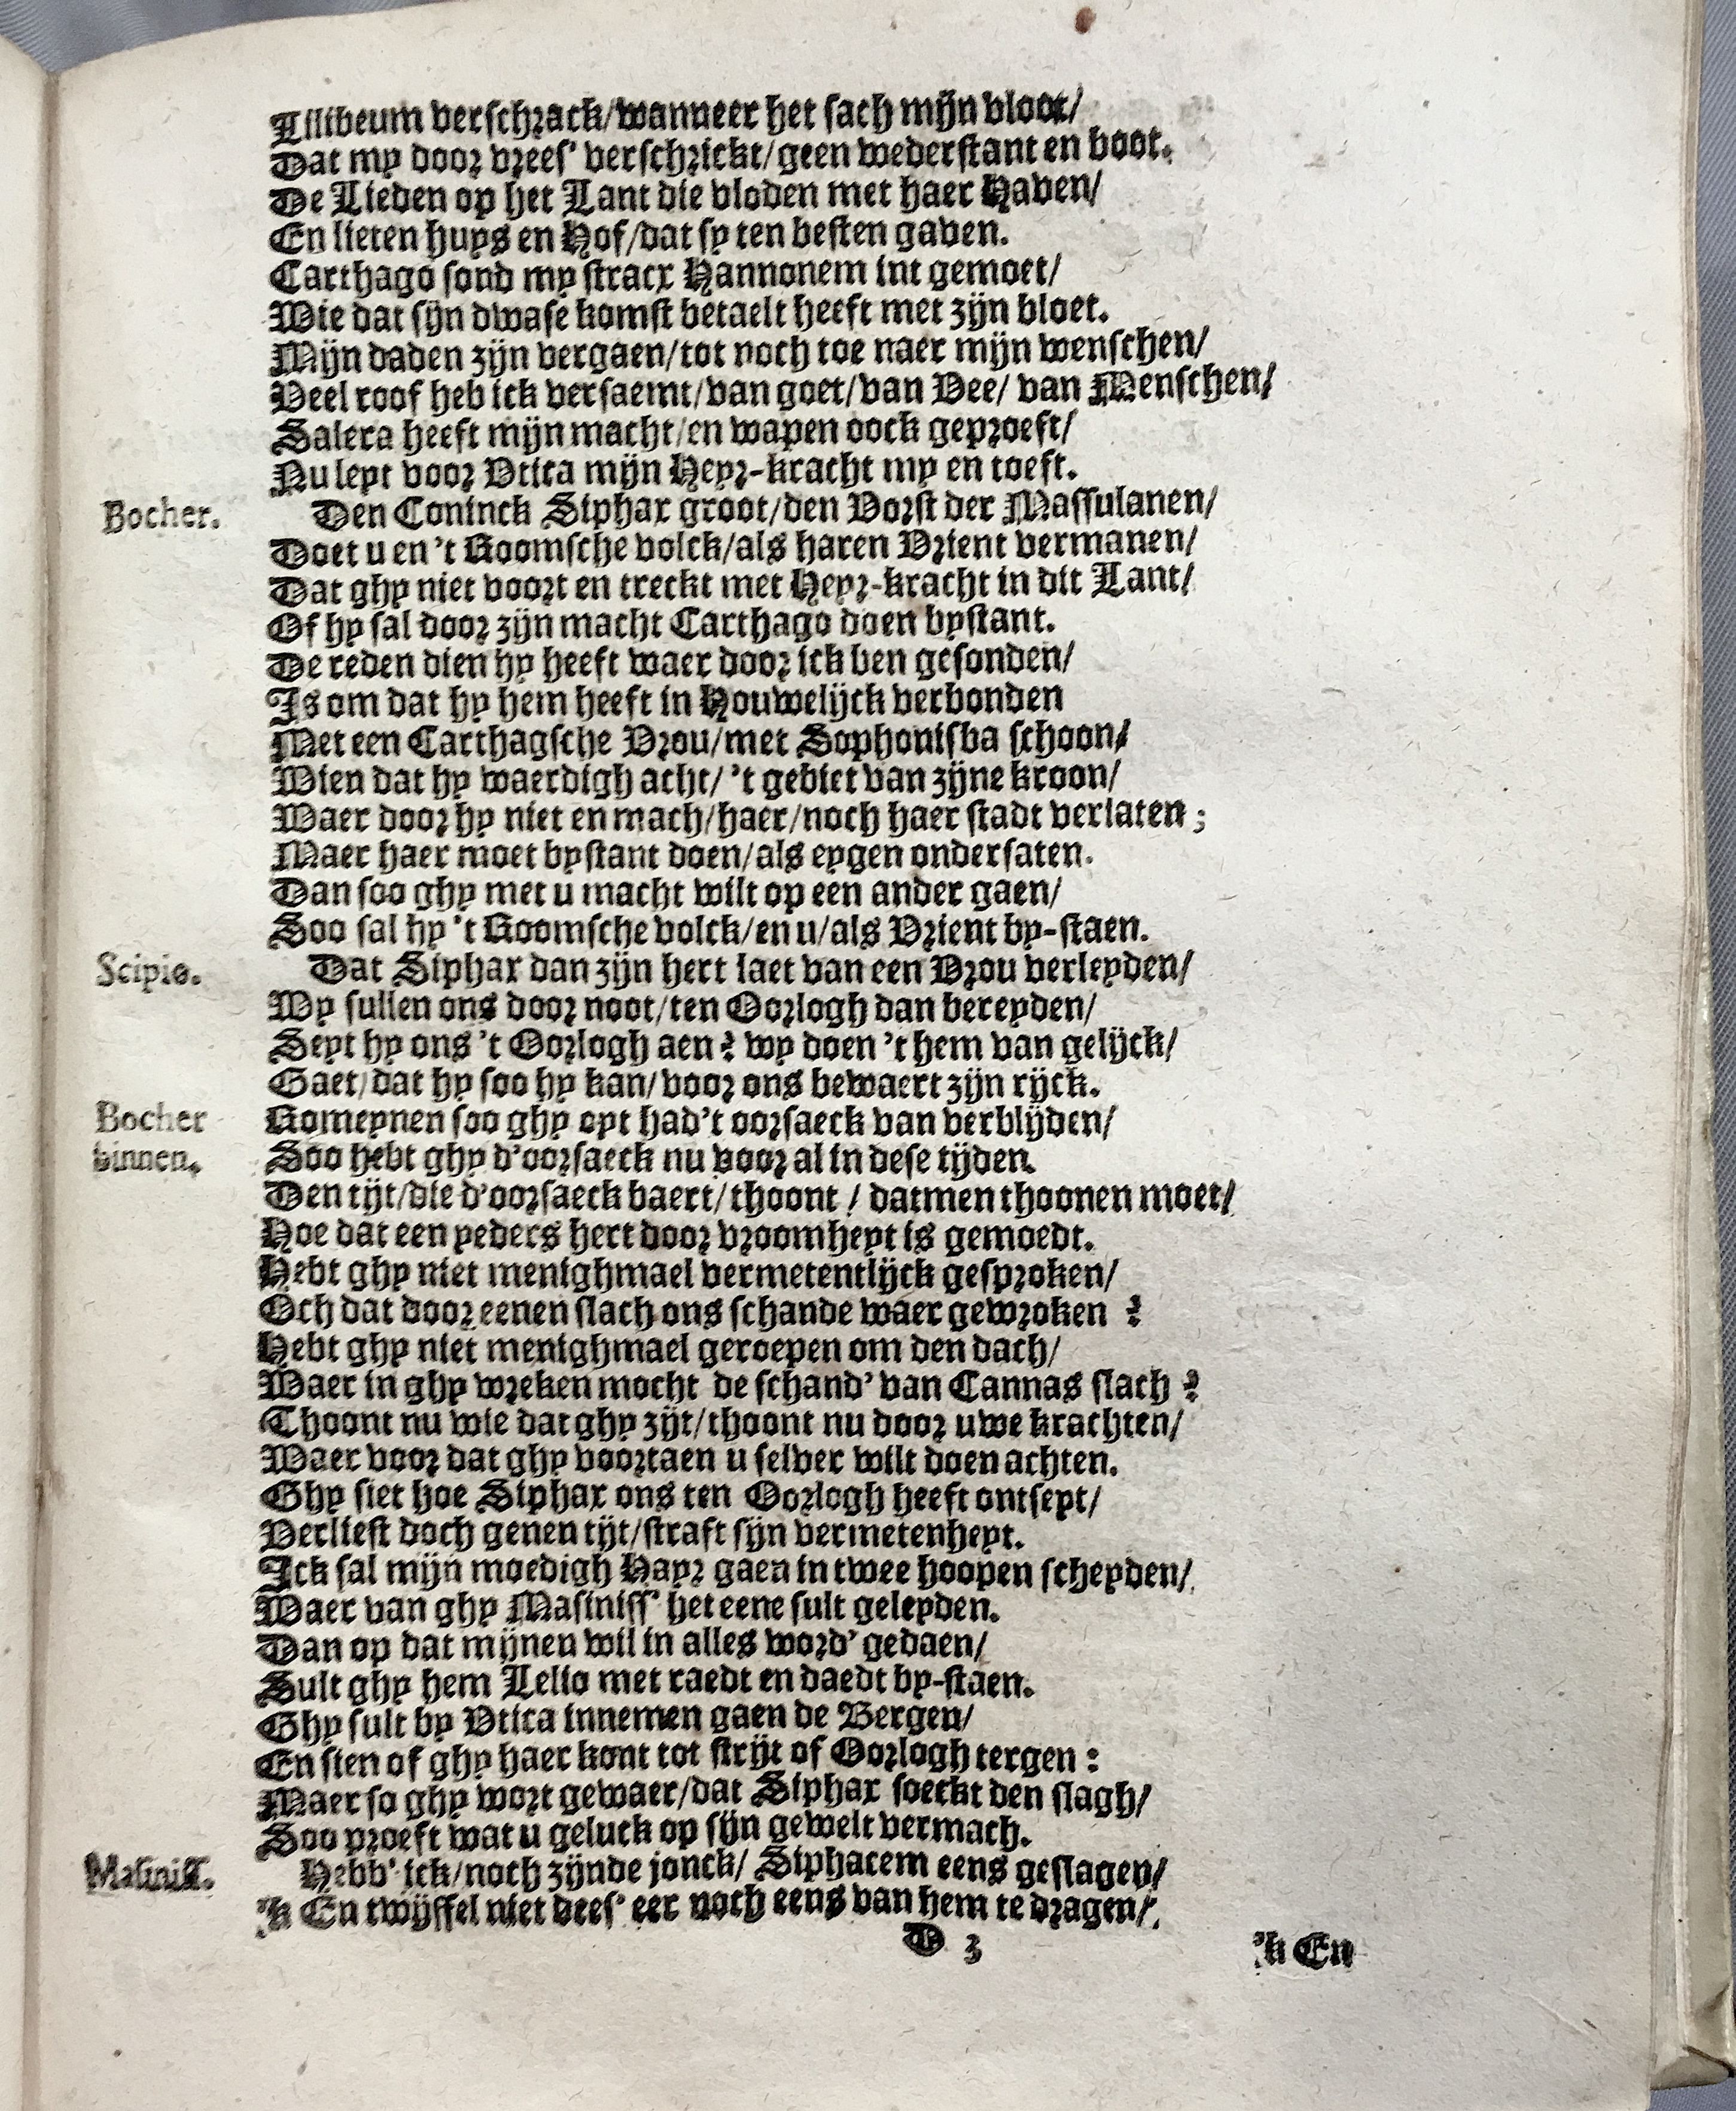 Lilibeum verschrack/wanneer het sach mijn vloot/
Dat my door vrees' verschrickt/geen wederstant en boot.
De Lieden op het Lant die vloden met haer Haven/
En lieten huys en Hof/dat sy ten besten gaven.
Carthago sond my stracx Hannonem int gemoet/
Wie dat sijn dwase komst betaelt heeft met zijn bloet.
Mijn daden zijn vergaen/tot noch toe naer mijn wenschen/
Veel roof heb ick versaemt/van goet/van Vee/ van Menschen/
Salera heeft mijn macht/en wapen oock geproeft/
Nu leyt voor Vtica mijn Heyr-kracht my en toeft.
Bocher. Den Coninck Siphax groot/den Vorst der Massulanen/
Doet u en 't Roomsche volck/als haren Vrient vermanen/
Dat ghy niet voort en treckt met Heyr-kracht in dit Lant/
Of hy sal door zijn macht Carthago doen bystant.
De reden dien hy heeft waer door ick ben gesonden/
Is om dat hy hem heeft in Houwelijck verbonden
Met een Carthagsche Vrou/met Sophonisba schoon/
Wien dat hy waerdigh acht/ 't gebiet van zijne kroon/
Waer door hy niet en mach/haer/noch haer stadt verlaten;
Maer haer moet bystant doen/als eygen ondersaten.
Dan soo ghy met u macht wilt op een ander gaen/
Soo sal hy 't Roomsche volck/en u/als Vrient by-staen.
Scipio. Dat Siphax dan zijn hert laet van een Vrou verleyden/
Wy sullen ons door noot/ten Oorlogh dan bereyden/
Seyt hy ons 't Oorlogh aen? wy doen 't hem van gelijck/
Gaet/dat hy soo hy kan/voor ons bewaert zijn rijck.
Bocher Romeynen soo ghy oyt had't oorsaeck van verblijden/
binnen. Soo hebt ghy d'oorsaeck nu voor al in dese tijden.
Den tijt/die d'oorsaeck baert/thoont / datmen thoonen moet/
Hoe dat een yeders hert door vroomheyt is gemoedt.
Hebt ghy niet menighmael vermetentlijck gesproken/
Och dat door eenen slach ons schande waer gewroken ?
Hebt ghy niet menighmael geroepen om den dach/
Waer in ghy wreken mocht de schand' van Cannas slach ?
Thoont nu wie dat ghy zijt/thoont nu door uwe krachten/
Waer voor dat ghy voortaen u selver wilt doen achten.
Ghy siet hoe Siphax ons ten Oorlogh heeft ontseyt/
Verliest doch genen tijt/straft sijn vermetenheyt.
Ick sal mijn moedigh Hayr gaen in twee hoopen scheyden/
Waer van ghy Masiniss' het eene sult geleyden.
Dan op dat mijnen wil in alles word' gedaen/
Sult ghy hem Lelio met raedt en daedt by-staen.
Ghy sult by Vtica innemen gaen de Bergen/
En sien of ghy haer kont tot strijt of Oorlogh tergen:
Maer so ghy wort gewaer/dat Siphax soeckt den slagh/
Soo proeft wat u geluck op sijn gewelt vermach.
Masiniss. Hebb' ick/noch zijnde jonck/ Siphacem eens geslagen/
'k En twijffel niet dees' eer noch eens van hem te dragen/
D 3 'k En